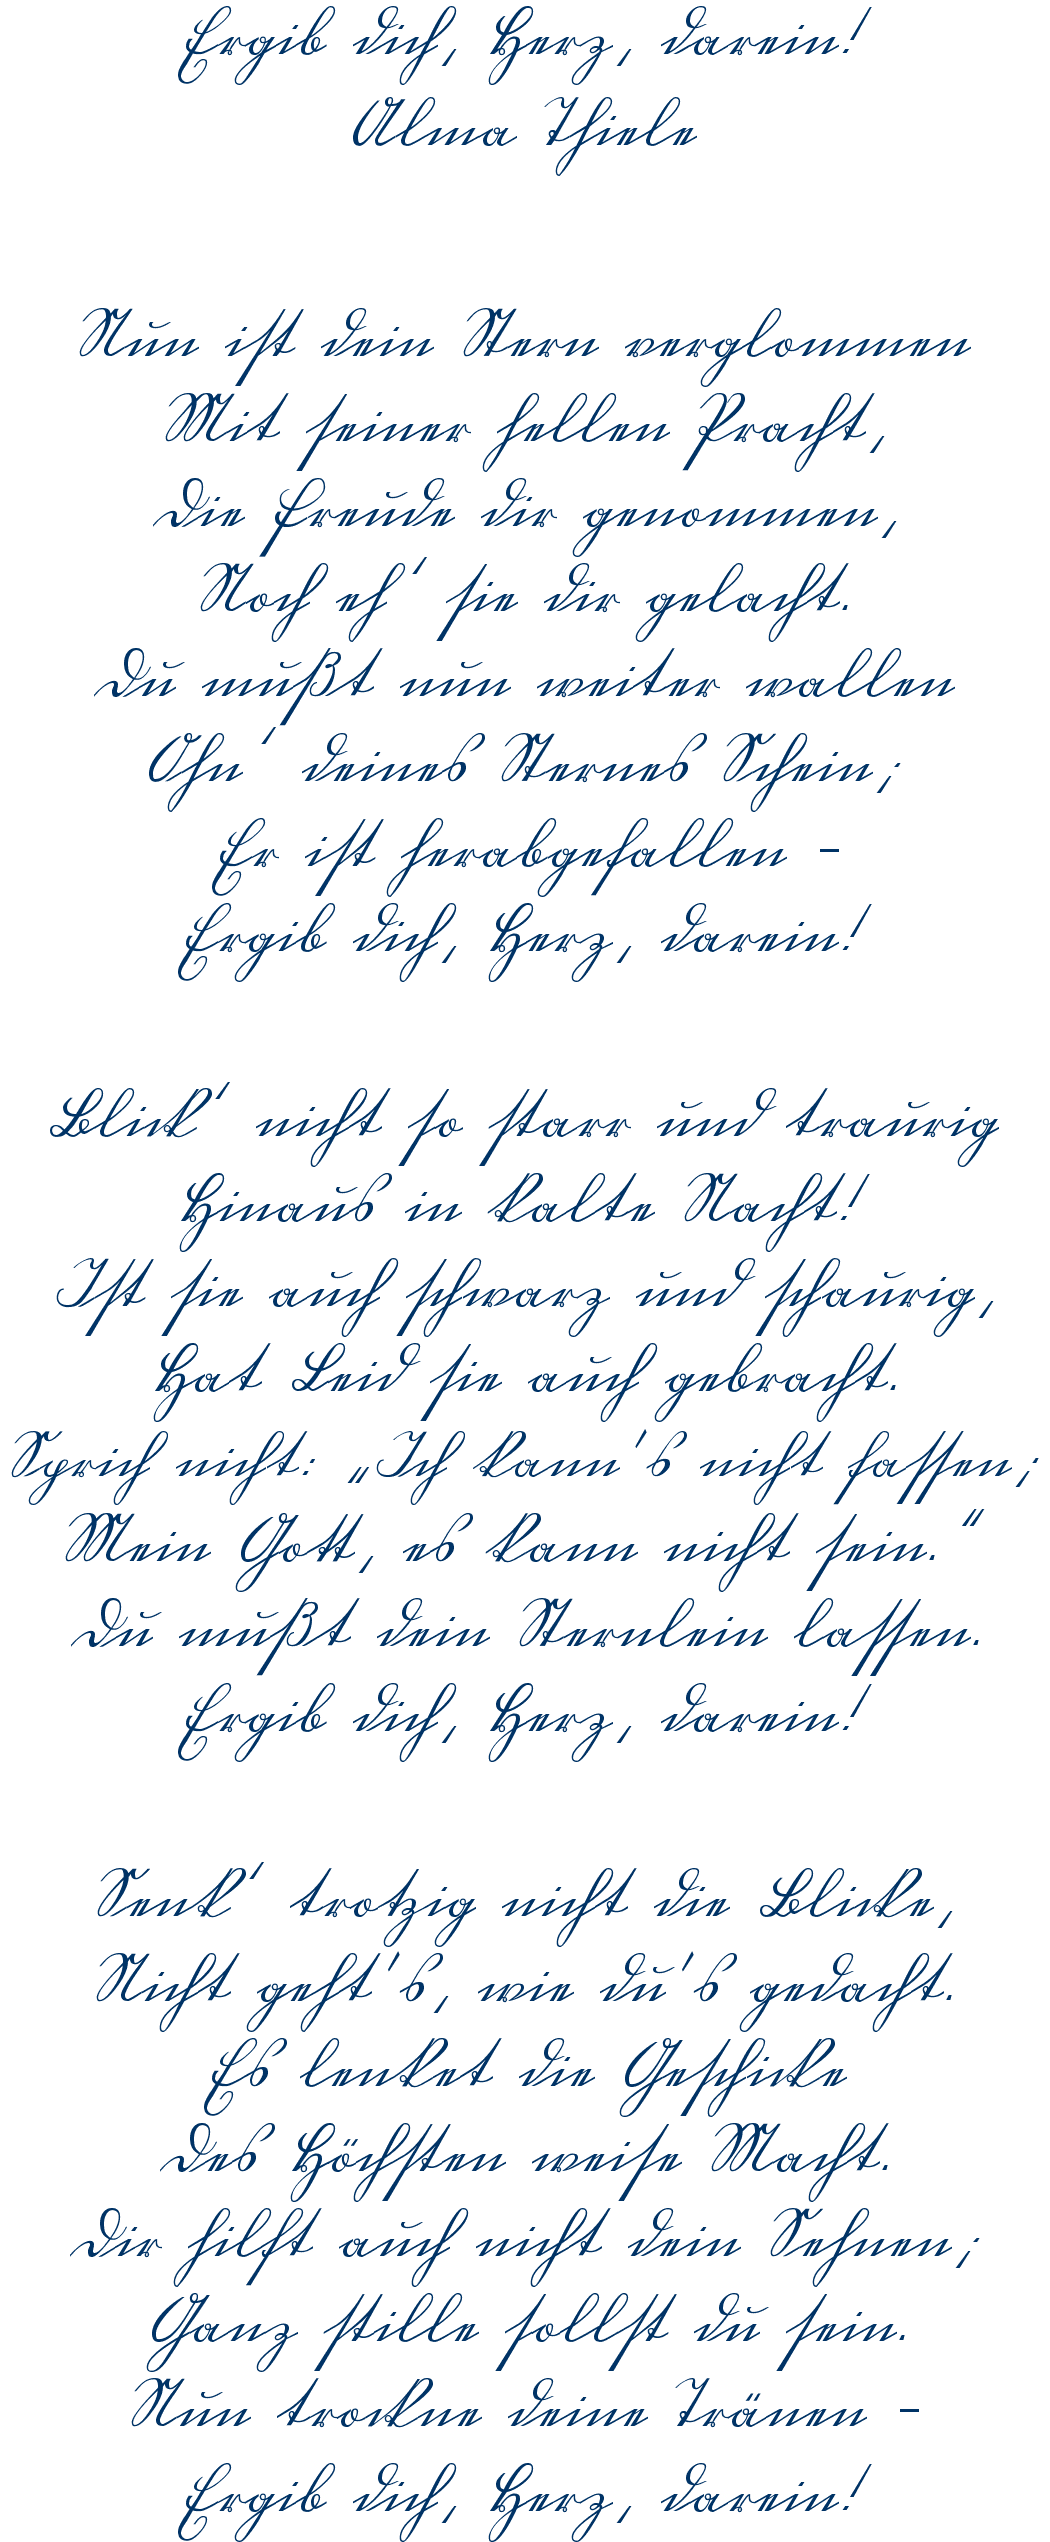 Ergib dich, Herz, darein!
Alma Thiele
Nun ist dein Stern verglommen
Mit seiner hellen Pracht,
Die Freude dir genommen,
Noch eh' sie dir gelacht.
Du mußt nun weiter wallen
Ohn' deines Sternes Schein;
Er ist herabgefallen -
Ergib dich, Herz, darein!
Blick' nicht so starr und traurig
Hinaus in kalte Nacht!
Ist sie auch schwarz und schaurig,
Hat Leid sie auch gebracht.
Sprich nicht: „Ich kann's nicht fassen;
Mein Gott, es kann nicht sein.“
Du mußt dein Sternlein lassen.
Ergib dich, Herz, darein!
Senk' trotzig nicht die Blicke,
Nicht geht's, wie du's gedacht.
Es lenket die Geschicke
Des Höchsten weise Macht.
Dir hilft auch nicht dein Sehnen;
Ganz stille sollst du sein.
Nun trockne deine Tränen -
Ergib dich, Herz, darein!